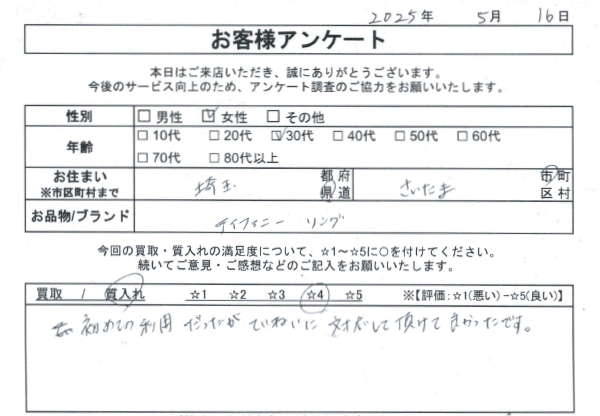 2025年 5月 16日
お客様アンケート
本日はご来店いただき、誠にありがとうございます。
今後のサービス向上のため、アンケート調査のご協力をお願いいたします。
性別 □ 男性 ☑ 女性 □ その他
年齢 □ 10代 □ 20代 ☑ 30代 □ 40代 □ 50代 □ 60代
□ 70代 □ 80代以上
お住まい ※市区町村まで 埼玉 都 府 県 道 さいたま 市 町 区 村
お品物/ブランド ティファニー リング
今回の買取・質入れの満足度について、☆1～☆5に○を付けてください。
続いてご意見・ご感想などのご記入をお願いいたします。
買取 / 質入れ ☆1 ☆2 ☆3 ☆4 ☆5 ※【評価:☆1(悪い)-☆5(良い)】
初めての利用だったがていねいに対応して頂けて良かったです。